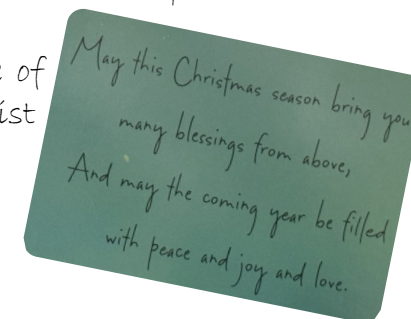 of
May this Christmas season bring you
many blessings from above,
And may the coming year be filled
with peace and joy and love.